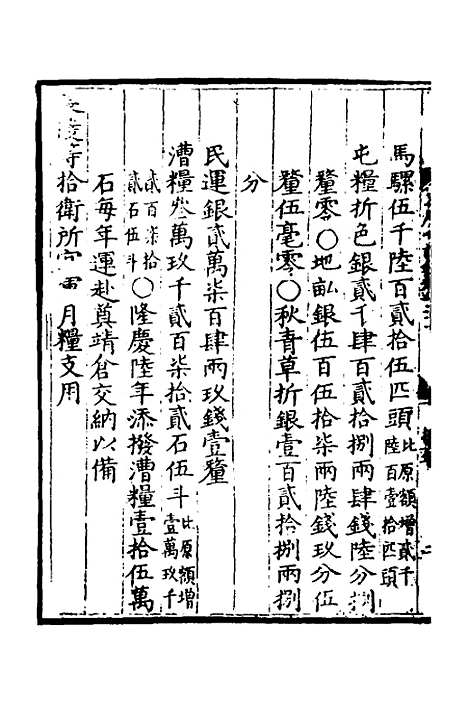 馬騾伍千陸百貳拾伍匹頭比原額增貳千陸百壹拾匹頭
屯糧折色銀貳千肆百貳拾捌兩肆錢陸分捌
釐零○地畝銀伍百伍拾柒兩陸錢玖分伍
釐伍毫零○秋青草折銀壹百貳拾捌兩捌
分
民運銀貳萬柒百肆兩玖錢壹釐
漕糧叁萬玖千貳百柒拾貳石伍斗比原額增壹萬玖千
貳百柒拾貳石伍斗○隆慶陸年添撥漕糧壹拾伍萬
石每年運赴奠靖倉交納以備
陵等拾衛所官軍月糧支用